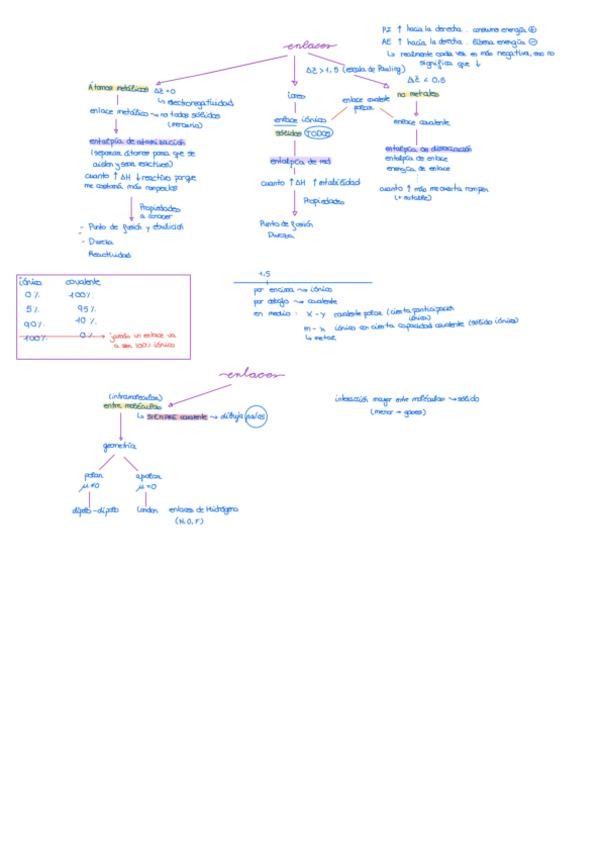 enlaces
PI ↑ hacia la derecha. consume energía ⊕
AE ↑ hacia la derecha. libera energía ⊖
↳ realmente cada vez es más negativa, eso no
significa que ↓
Átomos metálicos ΔZ=0
↳ electronegatividad
enlace metálico → no todos sólidos
(mercurio)
entalpía de atomización
(separar átomos para que se
aislen y sean reactivos)
cuanto ↑ ΔH ↓ reactivo porque
me costará más romperlos
Propiedades
a conocer
- Punto de fusión y ebullición
- Dureza
Reactividad
ΔZ > 1,5 (escala de Pauling)
Iones
enlace iónico
sólidos TODOS
entalpía de red
cuanto ↑ ΔH ↑ estabilidad
Propiedades
Punto de fusión
Dureza
enlace covalente
polar
ΔZ < 0,5
no metales
enlace covalente
entalpía de disociación
entalpía de enlace
energía de enlace
cuanto ↑ más me cuesta romper
(+ estable)
iónico covalente
0% 100%
5% 95%
90% 10%
100% 0% → jamás un enlace va
a ser 100% iónico
1.5
por encima → iónico
por debajo → covalente
en medio: X - Y covalente polar (cierta participación
iónica)
m - x iónico con cierta capacidad covalente (sólido iónico)
↳ metal
enlaces
(intramolecular)
entre moléculas
↳ SIEMPRE covalente → dibuja
geometría
polar
μ ≠ 0
dipolo-dipolo
apolar
μ = 0
London
enlaces de Hidrógeno
(N, O, F)
interacción mayor entre moléculas → sólido
(menor → gases)